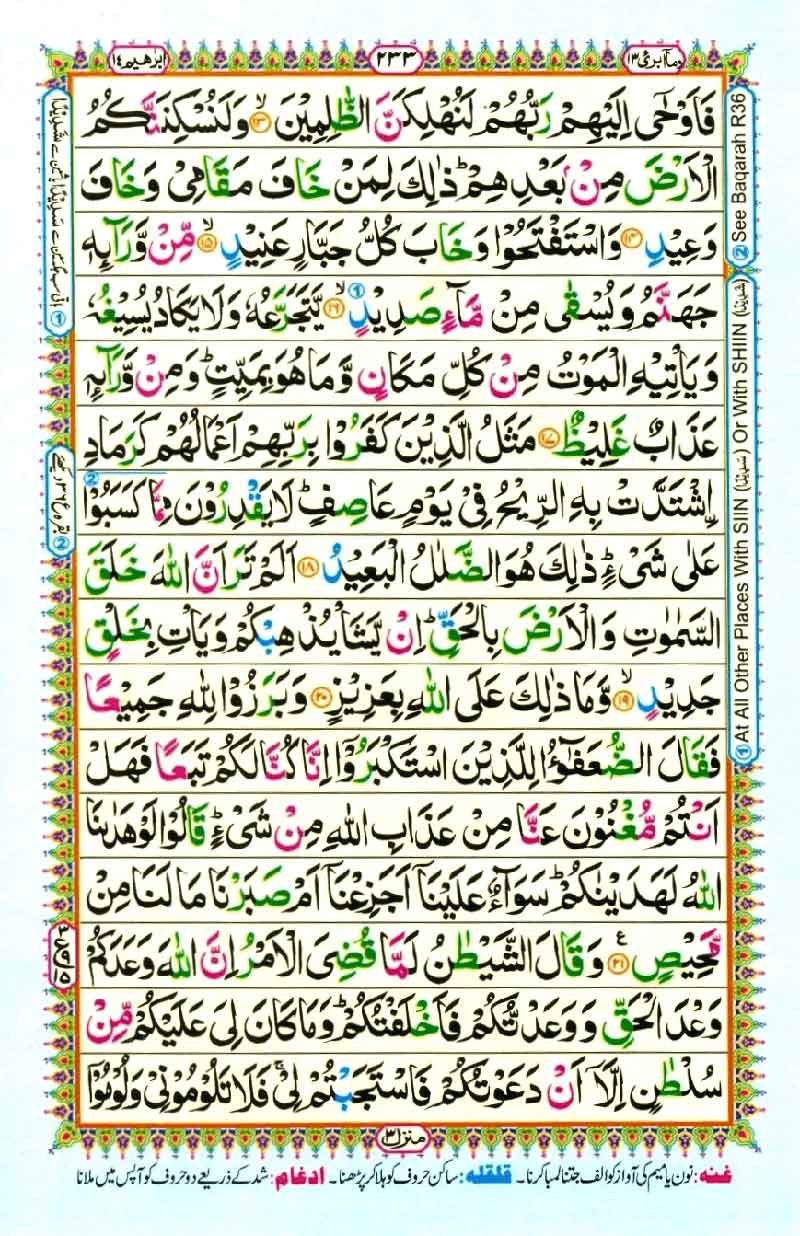 وَمَآ اُبَرِّئُ ١٣
٢٣٣
اِبْرٰهِيْم ١٤
فَاَوْحٰۤى اِلَيْهِمْ رَبُّهُمْ لَنُهْلِكَنَّ الظّٰلِمِيْنَ ۙ﴿١٣﴾ وَلَنُسْكِنَنَّكُمُ
الْاَرْضَ مِنْۢ بَعْدِهِمْ ؕ ذٰلِكَ لِمَنْ خَافَ مَقَامِيْ وَخَافَ
وَعِيْدِ ﴿١٤﴾ وَاسْتَفْتَحُوْا وَخَابَ كُلُّ جَبَّارٍ عَنِيْدٍ ۙ﴿١٥﴾ مِّنْ وَّرَآئِهٖ
جَهَنَّمُ وَيُسْقٰى مِنْ مَّآءٍ صَدِيْدٍ ① ۙ﴿١٦﴾ يَّتَجَرَّعُهٗ وَلَا يَكَادُ يُسِيْغُهٗ
وَيَاْتِيْهِ الْمَوْتُ مِنْ كُلِّ مَكَانٍ وَّمَا هُوَ بِمَيِّتٍ ؕ وَمِنْ وَّرَآئِهٖ
عَذَابٌ غَلِيْظٌ ﴿١٧﴾ مَثَلُ الَّذِيْنَ كَفَرُوْا بِرَبِّهِمْ اَعْمَالُهُمْ كَرَمَادِ
ۨاشْتَدَّتْ بِهِ الرِّيْحُ فِيْ يَوْمٍ عَاصِفٍ ؕ لَا يَقْدِرُوْنَ مِمَّا كَسَبُوْا ②
عَلٰى شَيْءٍ ؕ ذٰلِكَ هُوَ الضَّلٰلُ الْبَعِيْدُ ﴿١٨﴾ اَلَمْ تَرَ اَنَّ اللّٰهَ خَلَقَ
السَّمٰوٰتِ وَالْاَرْضَ بِالْحَقِّ ؕ اِنْ يَّشَاْ يُذْهِبْكُمْ وَيَاْتِ بِخَلْقٍ
جَدِيْدٍ ۙ﴿١٩﴾ وَّمَا ذٰلِكَ عَلَى اللّٰهِ بِعَزِيْزٍ ﴿٢٠﴾ وَبَرَزُوْا لِلّٰهِ جَمِيْعًا
فَقَالَ الضُّعَفٰٓؤُا لِلَّذِيْنَ اسْتَكْبَرُوْۤا اِنَّا كُنَّا لَكُمْ تَبَعًا فَهَلْ
اَنْتُمْ مُّغْنُوْنَ عَنَّا مِنْ عَذَابِ اللّٰهِ مِنْ شَيْءٍ ؕ قَالُوْا لَوْ هَدٰىنَا
اللّٰهُ لَهَدَيْنٰكُمْ ؕ سَوَآءٌ عَلَيْنَآ اَجَزِعْنَآ اَمْ صَبَرْنَا مَا لَنَا مِنْ
مَّحِيْصٍ ﴿٢١﴾ ع وَقَالَ الشَّيْطٰنُ لَمَّا قُضِيَ الْاَمْرُ اِنَّ اللّٰهَ وَعَدَكُمْ
وَعْدَ الْحَقِّ وَوَعَدْتُّكُمْ فَاَخْلَفْتُكُمْ ؕ وَمَا كَانَ لِيَ عَلَيْكُمْ مِّنْ
سُلْطٰنٍ اِلَّاۤ اَنْ دَعَوْتُكُمْ فَاسْتَجَبْتُمْ لِيْ ۚ فَلَا تَلُوْمُوْنِيْ وَلُوْمُوْۤا
② See Baqarah R36
① At All Other Places With SIIN (سَدِيْدًا) Or With SHIIN (شَدِيْدًا)
منزل ٣
غنه: نون یا میم کی آواز کو الف جتنا لمبا کرنا۔ قلقله: ساکن حروف کو ہلا کر پڑھنا۔ ادغام: شد کے ذریعے دو حروف کو آپس میں ملانا